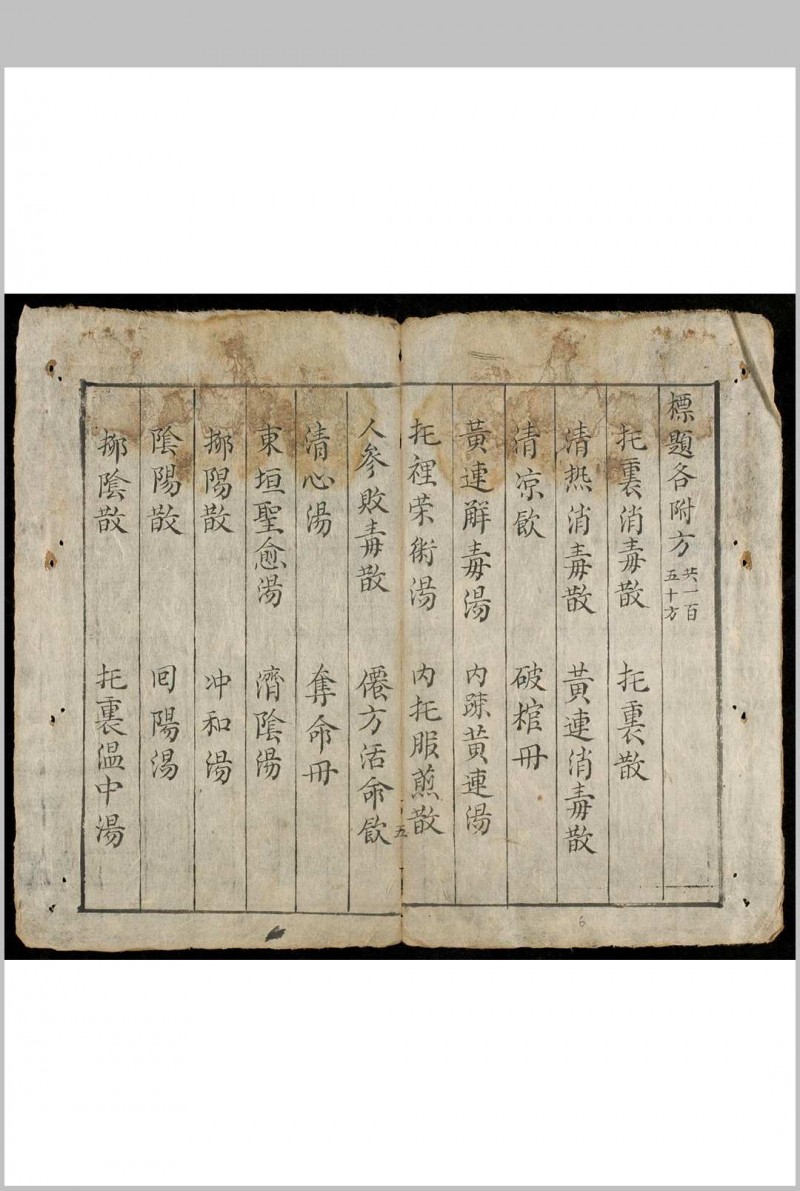 標題各附方 共一百五十方
托裏消毒散 托裏散
清热消毒散 黃連消毒散
清凉飲 破棺丹
黃連解毒湯 內踈黃連湯
托裡荣衛湯 內托服煎散
五
人參敗毒散 僊方活命飲
清心湯 奪命丹
東垣聖愈湯 濟陰湯
挪陽散 冲和湯
陰陽散 回陽湯
挪陰散 托裏温中湯
6